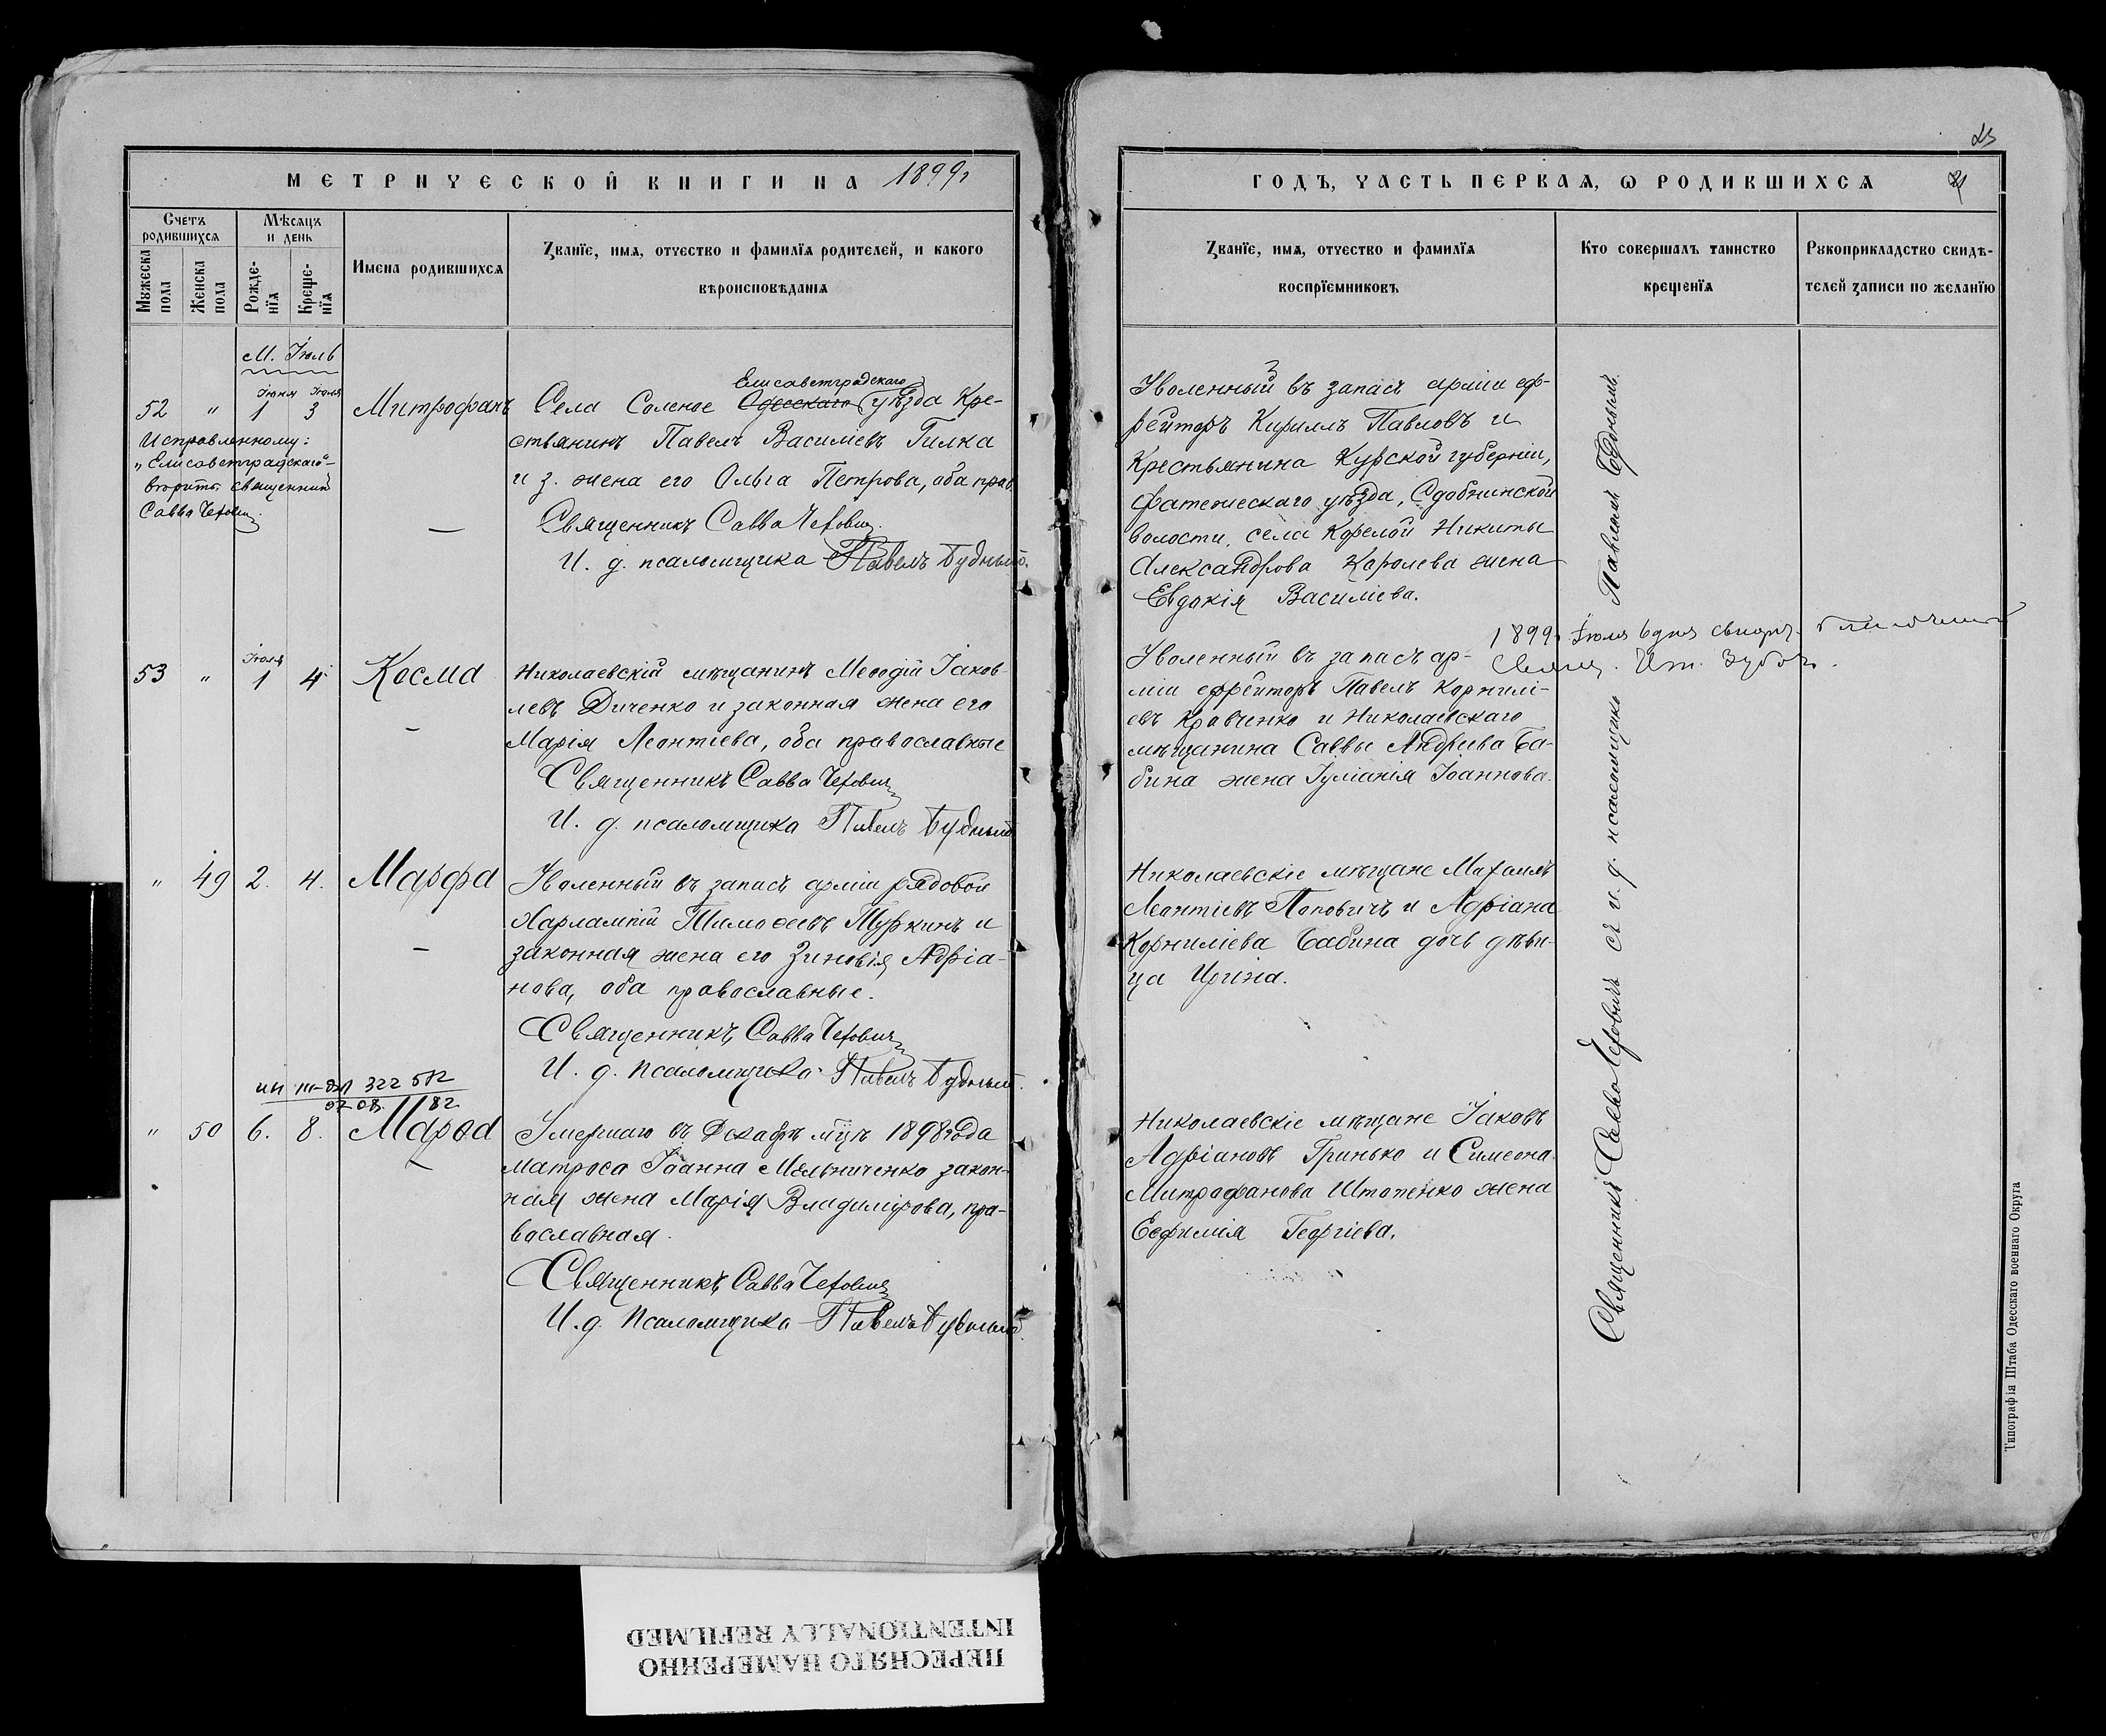 МЕТРИЧЕСКОЙ КНИГИ НА 1899г
Счетъ родившихся
Мѣсяцъ и день
Имена родившихся
Званіе, имя, отчество и фамилія родителей, и какого
вѣроисповѣданія
Мужеска пола
Женска пола
Рожденія
Крещенія
М. Іюль
Іюня Іюля
52 " 1 3 Митрофанъ
Исправленному:
"Елисаветградскаго"
вѣрить: священникъ
Савва Чехович
Елисаветградскаго
Села Соленое Одесскаго уѣзда Кре-
стьянинъ Павелъ Васильевъ Гилка
и з. жена его Ольга Петрова, оба прав.
Священникъ Савва Чехович
И. д. псаломщика Павелъ Будный.
Іюля
53 " 1 4 Косма
Николаевскій мѣщанинъ Меѳодій Іаков-
левъ Диченко и законная жена его
Марія Леонтіева, оба православные
Священникъ Савва Чехович
И. д. псаломщика Павелъ Будный
" 49 2. 4. Марфа
Уволенный въ запасъ арміи рядовой
Харлампій Тимоѳеевъ Туркинъ и
законная жена его Зиновія Адріа-
нова, оба православные.
Священникъ Савва Чехович
И. д. псаломщика Павелъ Будный.
322 582
82
" 50 6. 8. Марѳа
Умершаго въ Декабрѣ мцѣ 1898 года
матроса Іоанна Мельниченко закон-
ная жена Марія Владимірова, пра-
вославная.
Священникъ Савва Чехович
И. д. Псаломщика Павелъ Будный.
25
ГОДЪ, ЧАСТЬ ПЕРВАЯ, Ѡ РОДИВШИХСЯ
Званіе, имя, отчество и фамилія
воспріемниковъ
Кто совершалъ таинство
крещенія
Рукоприкладство свидѣ-
телей записи по желанію
Уволенный въ запасъ арміи еф-
рейторъ Кириллъ Павловъ и
Крестьянина Курской губерніи,
Фатежскаго уѣзда, Сдобнинской
волости, села Корелой Никиты
Александрова Королева жена
Евдокія Василіева.
1899. Іюля 6 дня
Уволенный въ запасъ ар-
міи ефрейторъ Павелъ Корнилі-
евъ Кравченко и Николаевскаго
мѣщанина Саввы Андреева Ба-
бина жена Іуліанія Іоаннова.
Николаевскіе мѣщане Михаилъ
Леонтіевъ Поповичъ и Адріана
Корниліева Бабина дочь дѣви-
ца Ирина.
Николаевскіе мѣщане Іаковъ
Адріановъ Гринько и Симеона
Митрофанова Штопенко жена
Евфимія Георгіева.
Священникъ Савва Чеховичъ съ и. д. псаломщика Павломъ Буднымъ.
Типографія Штаба Одесскаго военнаго Округа
ПЕРЕСНЯТО НАМЕРЕННО
INTENTIONALLY REFILMED